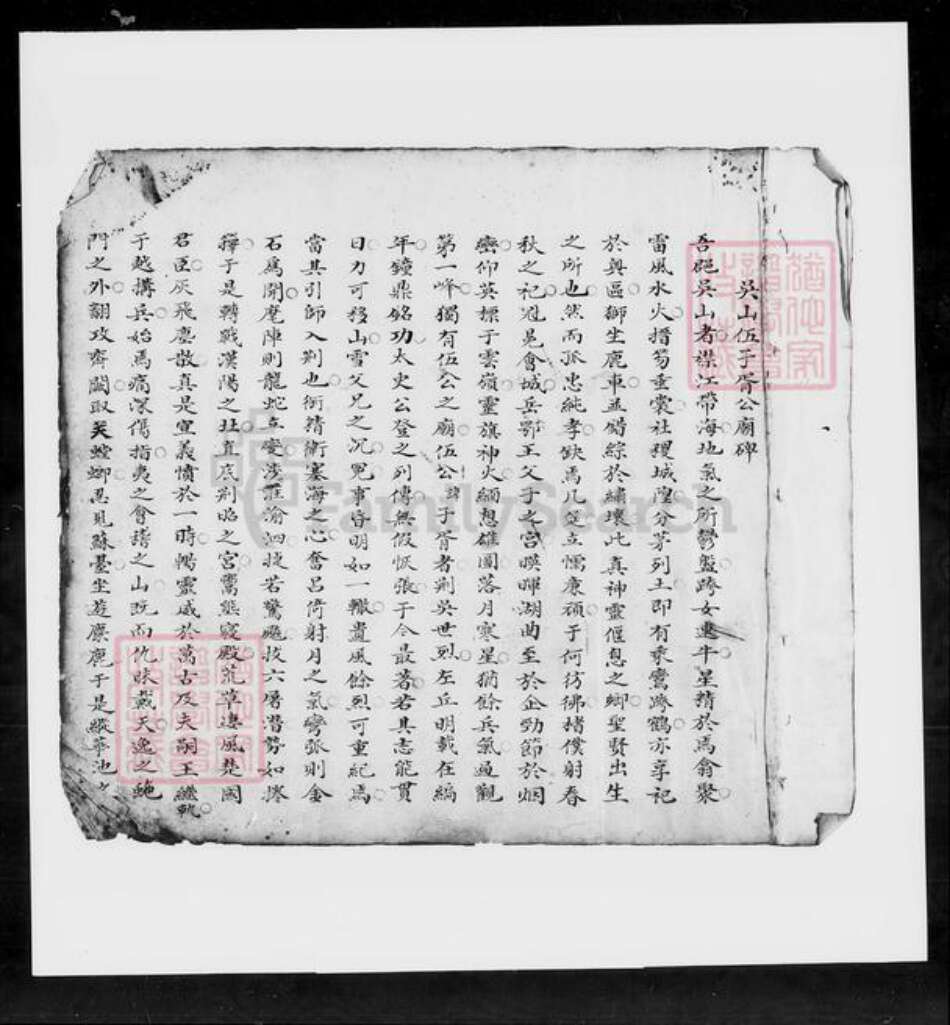 吳山伍子胥公廟碑
吾郡吳山者襟江帶海地氣之所鬱盤跨女連牛星精於焉翕聚
雷風水火搢笏垂裳社稷城隍分茅列土即有乘鸞跨鶴亦享祀
於輿區獅生鹿車並錯綜於繡壤此真神靈偃息之鄉聖賢出生
之所也然而孤忠純孝缺焉几筵立懦廉頑于何彷彿措僕射春
秋之祀冠邑會城岳鄂王父子之宮暎暉湖曲至於企勁節於烟
巒仰英標于雲嶺靈旗神火緬想雄圖落月寒星猶餘兵氣過觀
第一峰獨有伍公之廟伍公諱子胥者荆吳世烈左丘明載在編
年鐘鼎銘功太史公登之列傳無假恢張于今最著若其志能貫
日力可移山雪父兄之沉冤事昏明如一轍遺風餘烈可重紀焉
當其引師入荆也銜精衛塞海之心奮呂倚射月之氣彎弧則金
石為開麾陣則龍蛇立變涉淮渝泗捷若驚飈拔六屠潛勢如摧
擇于是轉戰漢陽之北直底荆昭之宮鬻熊寢殿荒草連風楚國
君臣灰飛塵散真是宣義憤於一時暢靈威於萬古及夫嗣王繼軌
于越搆兵始焉痛深傷指夷之會稽之山既而仇昧戴天逸之
門之外翻攻齊闕取笑螳螂忍見蘇臺坐遊麋鹿于是
FamilySearch